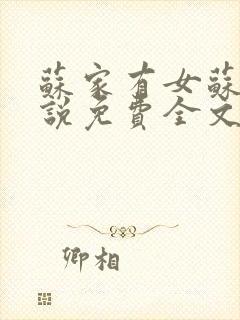 蘇家有女蘇
說免費全文
卿相